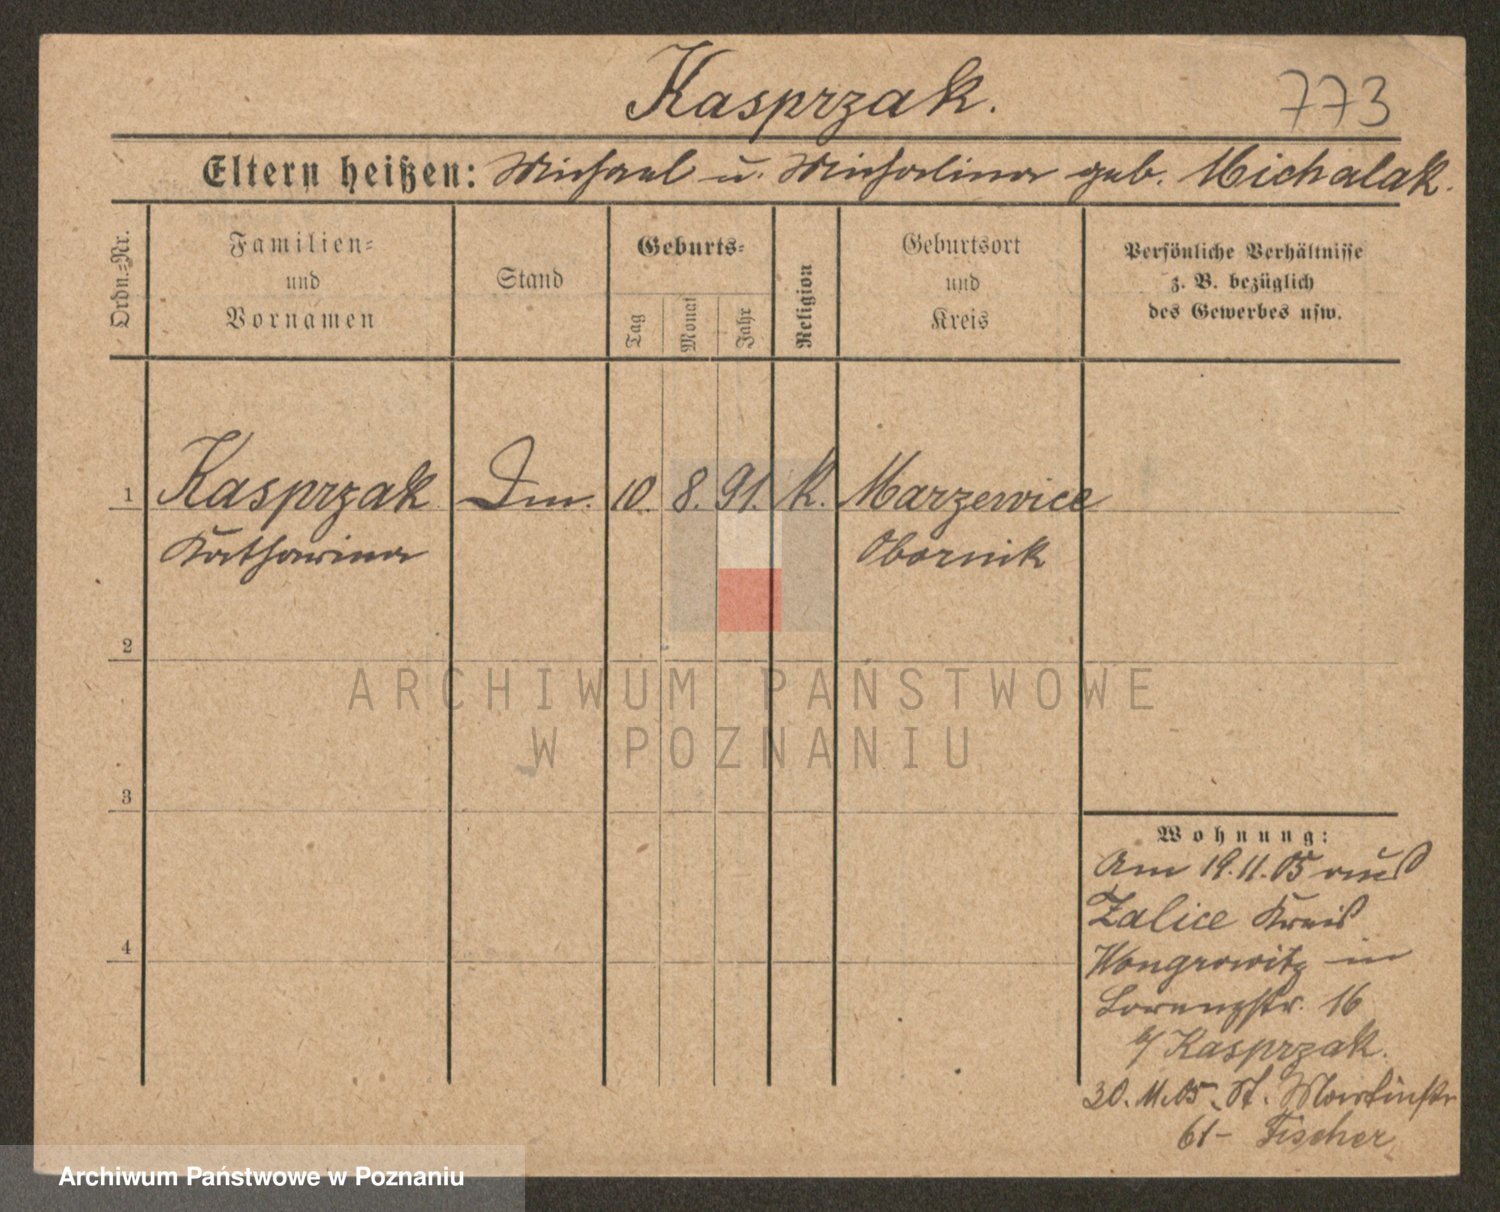 Kasprzak.
773
Eltern heißen: Michael u. Michalina geb. Michalak.
Ordn.=Nr.
Familien=
und
Vornamen
Stand
Geburts=
Tag
Monat
Jahr
Religion
Geburtsort
und
Kreis
Persönliche Verhältnisse
z. B. bezüglich
des Gewerbes usw.
1
Kasprzak
10. 8. 91. k. Marzewice
Katharina
Obornik
2
3
4
Wohnung:
Am 19.11.05 aus
Zalice Kreis
Wongrowitz in
Lorenzstr. 16
b/ Kasprzak.
30.11.05. St. Martinstr
61- Fischer
ARCHIWUM PAŃSTWOWE
W POZNANIU
Archiwum Państwowe w Poznaniu